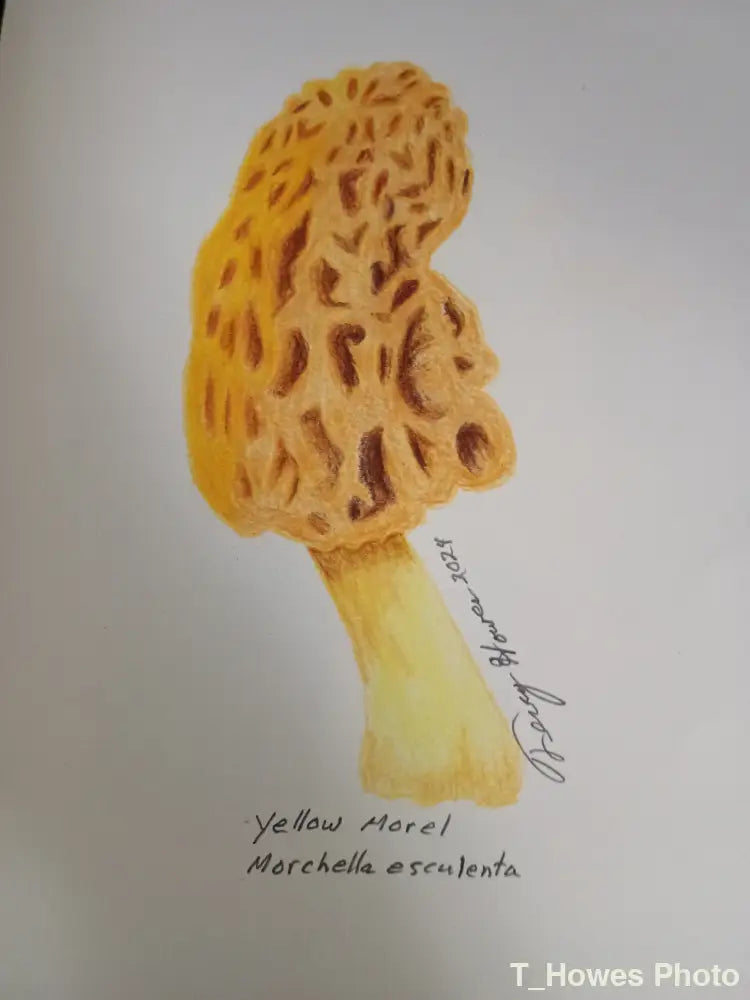 2024
Yellow Morel
Morchella esculenta
T_Howes Photo